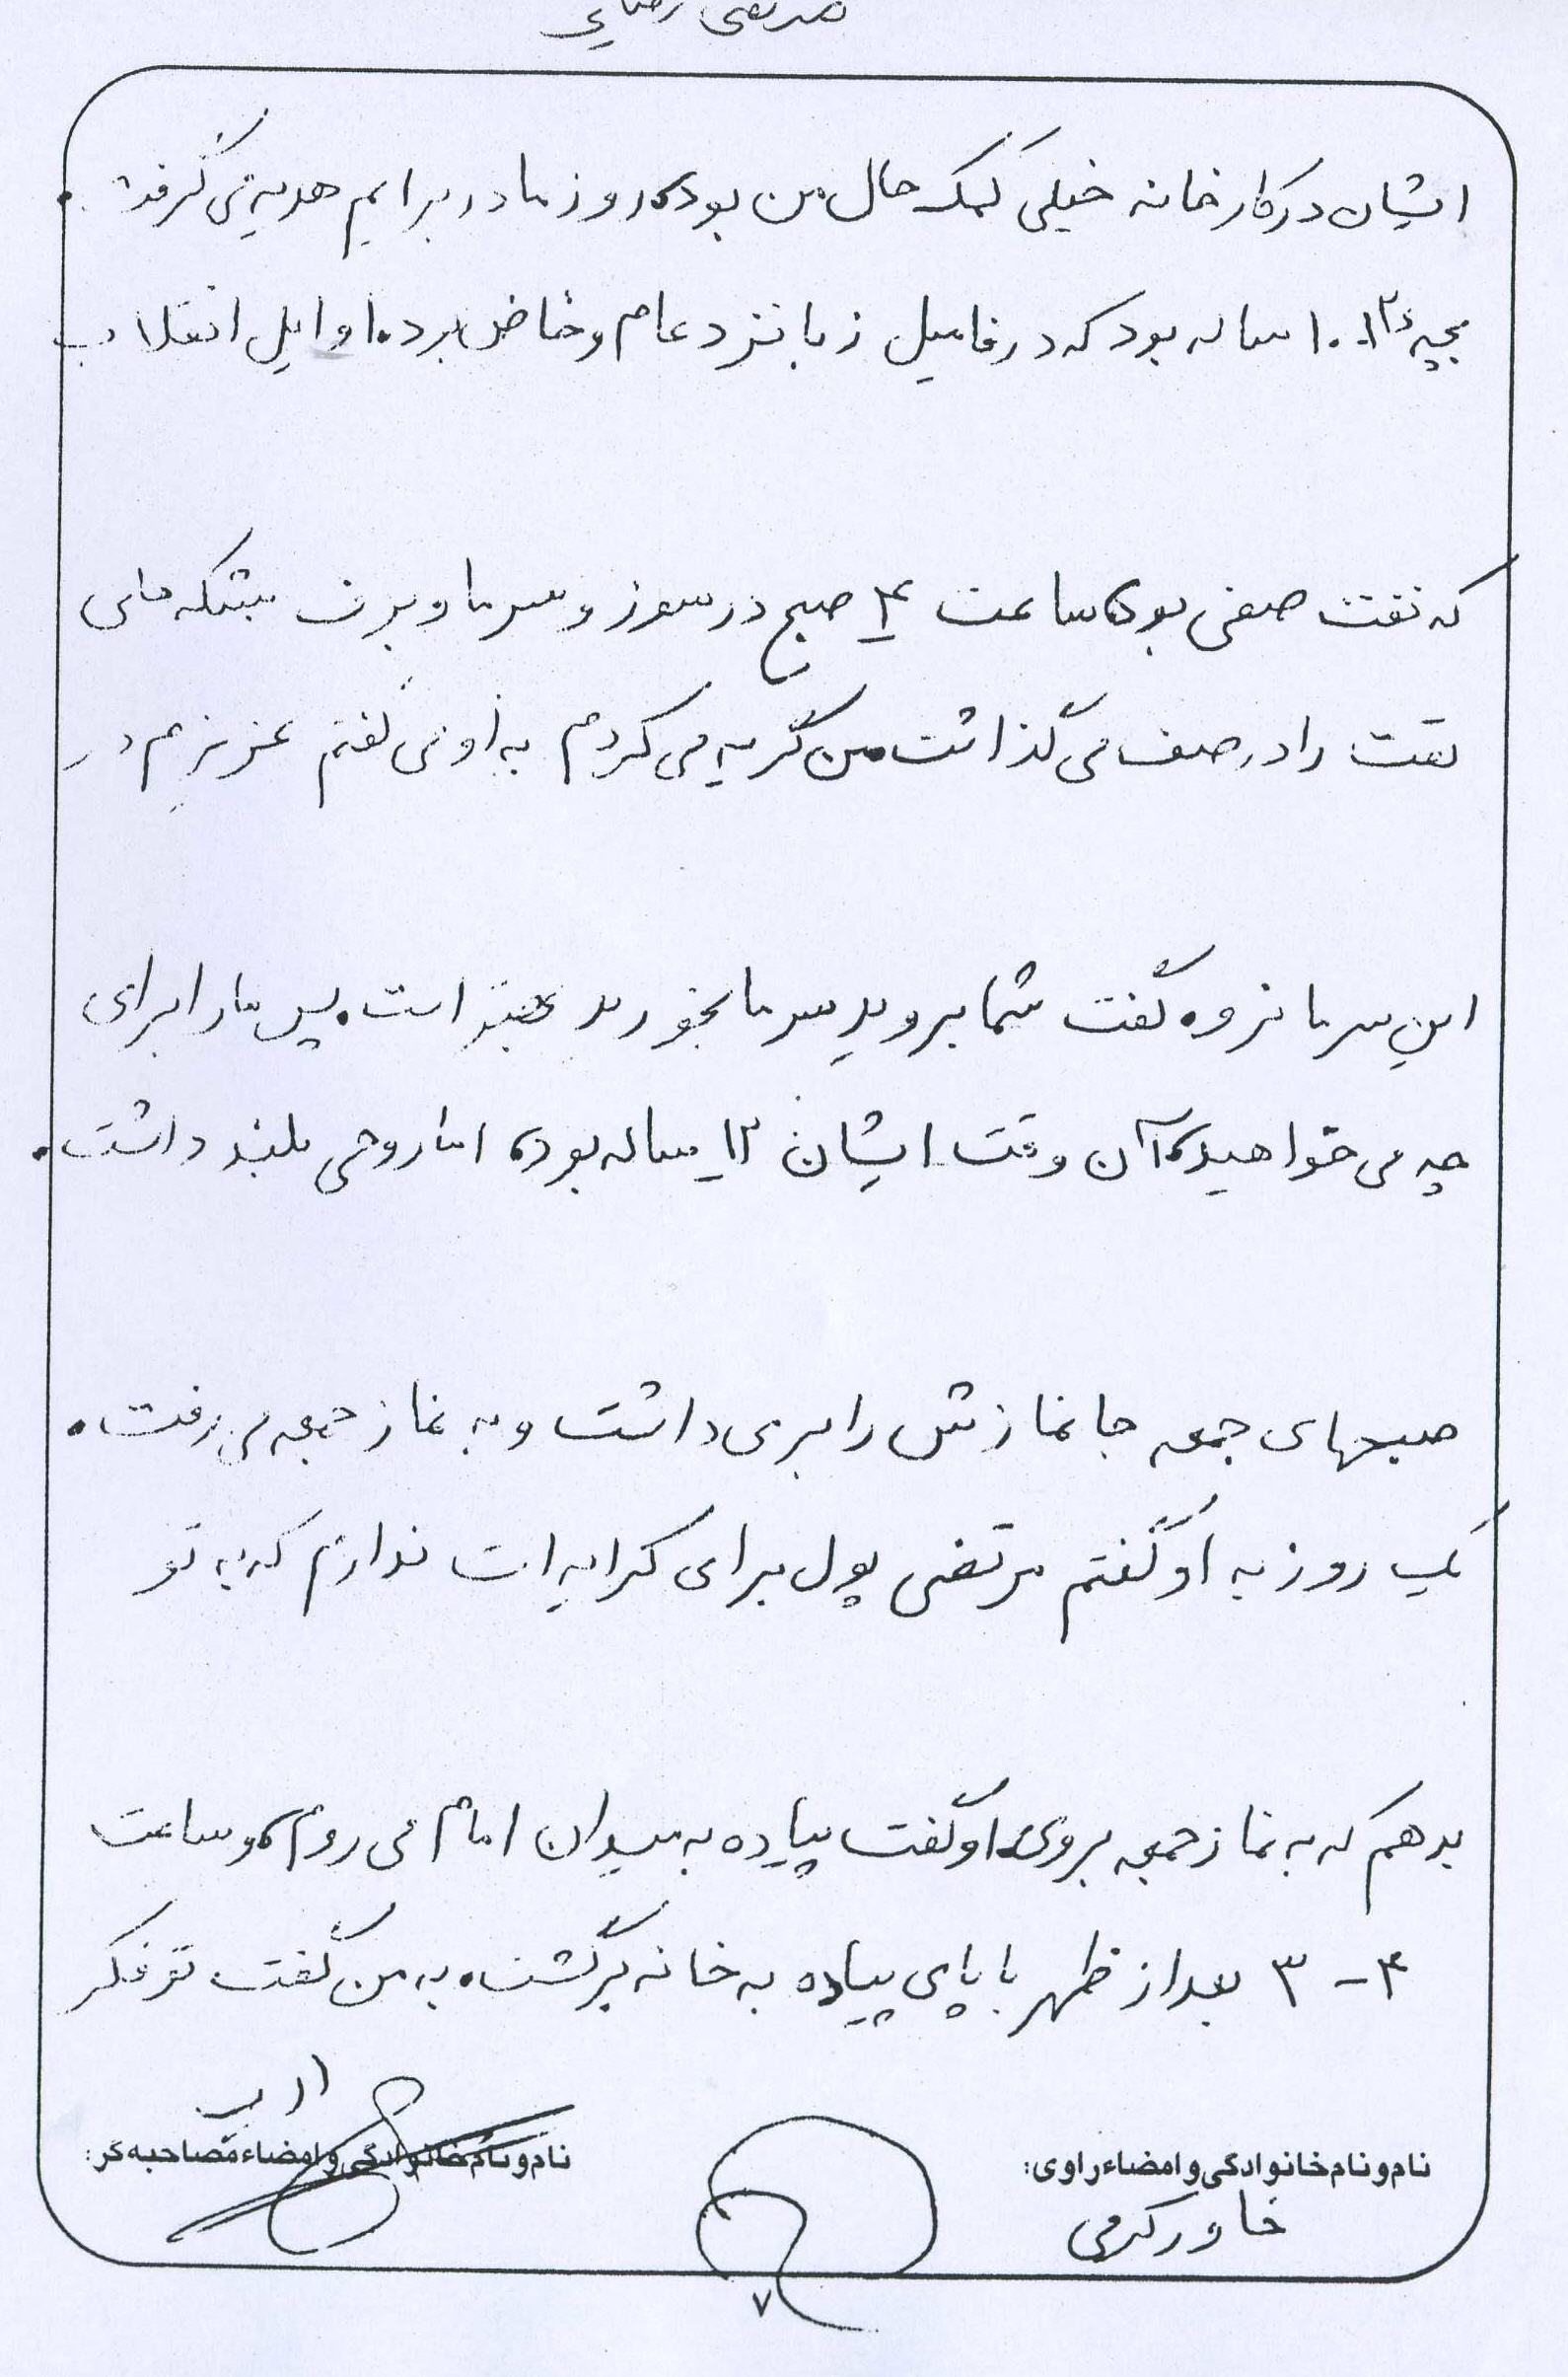 مرتضی رضایی
ایشان در کارخانه خیلی کمک حال من بود، روز مادر برایم هدیه می گرفت.
بچه ۱۲، ۱۰ ساله بود که در فامیل زبانزد عام و خاص بود، اوایل انقلاب
که نفت صفی بود، ساعت ۴ صبح در سوز و سرما و برف بشکه های
نفت را در صف می گذاشت، من گریه می کردم به او می گفتم عزیزم در
این سرما نرو، گفت شما بروید سرما بخورید بهتر است. پس ما را برای
چه می خواهید، آن وقت ایشان ۱۲ ساله بود، اما روحی بلند داشت.
صبحهای جمعه جانمازش را برمی داشت و به نماز جمعه می رفت.
یک روز به او گفتم مرتضی پول برای کرایه ات ندارم که به تو
بدهم که به نماز جمعه بروی، او گفت پیاده به میدان امام می روم، و ساعت
۴ - ۳ بعد از ظهر با پای پیاده به خانه برگشت. به من گفت تو فکر
نام و نام خانوادگی و امضاء راوی:
نام و نام خانوادگی و امضاء مصاحبه گر:
خاور کرمی
۷